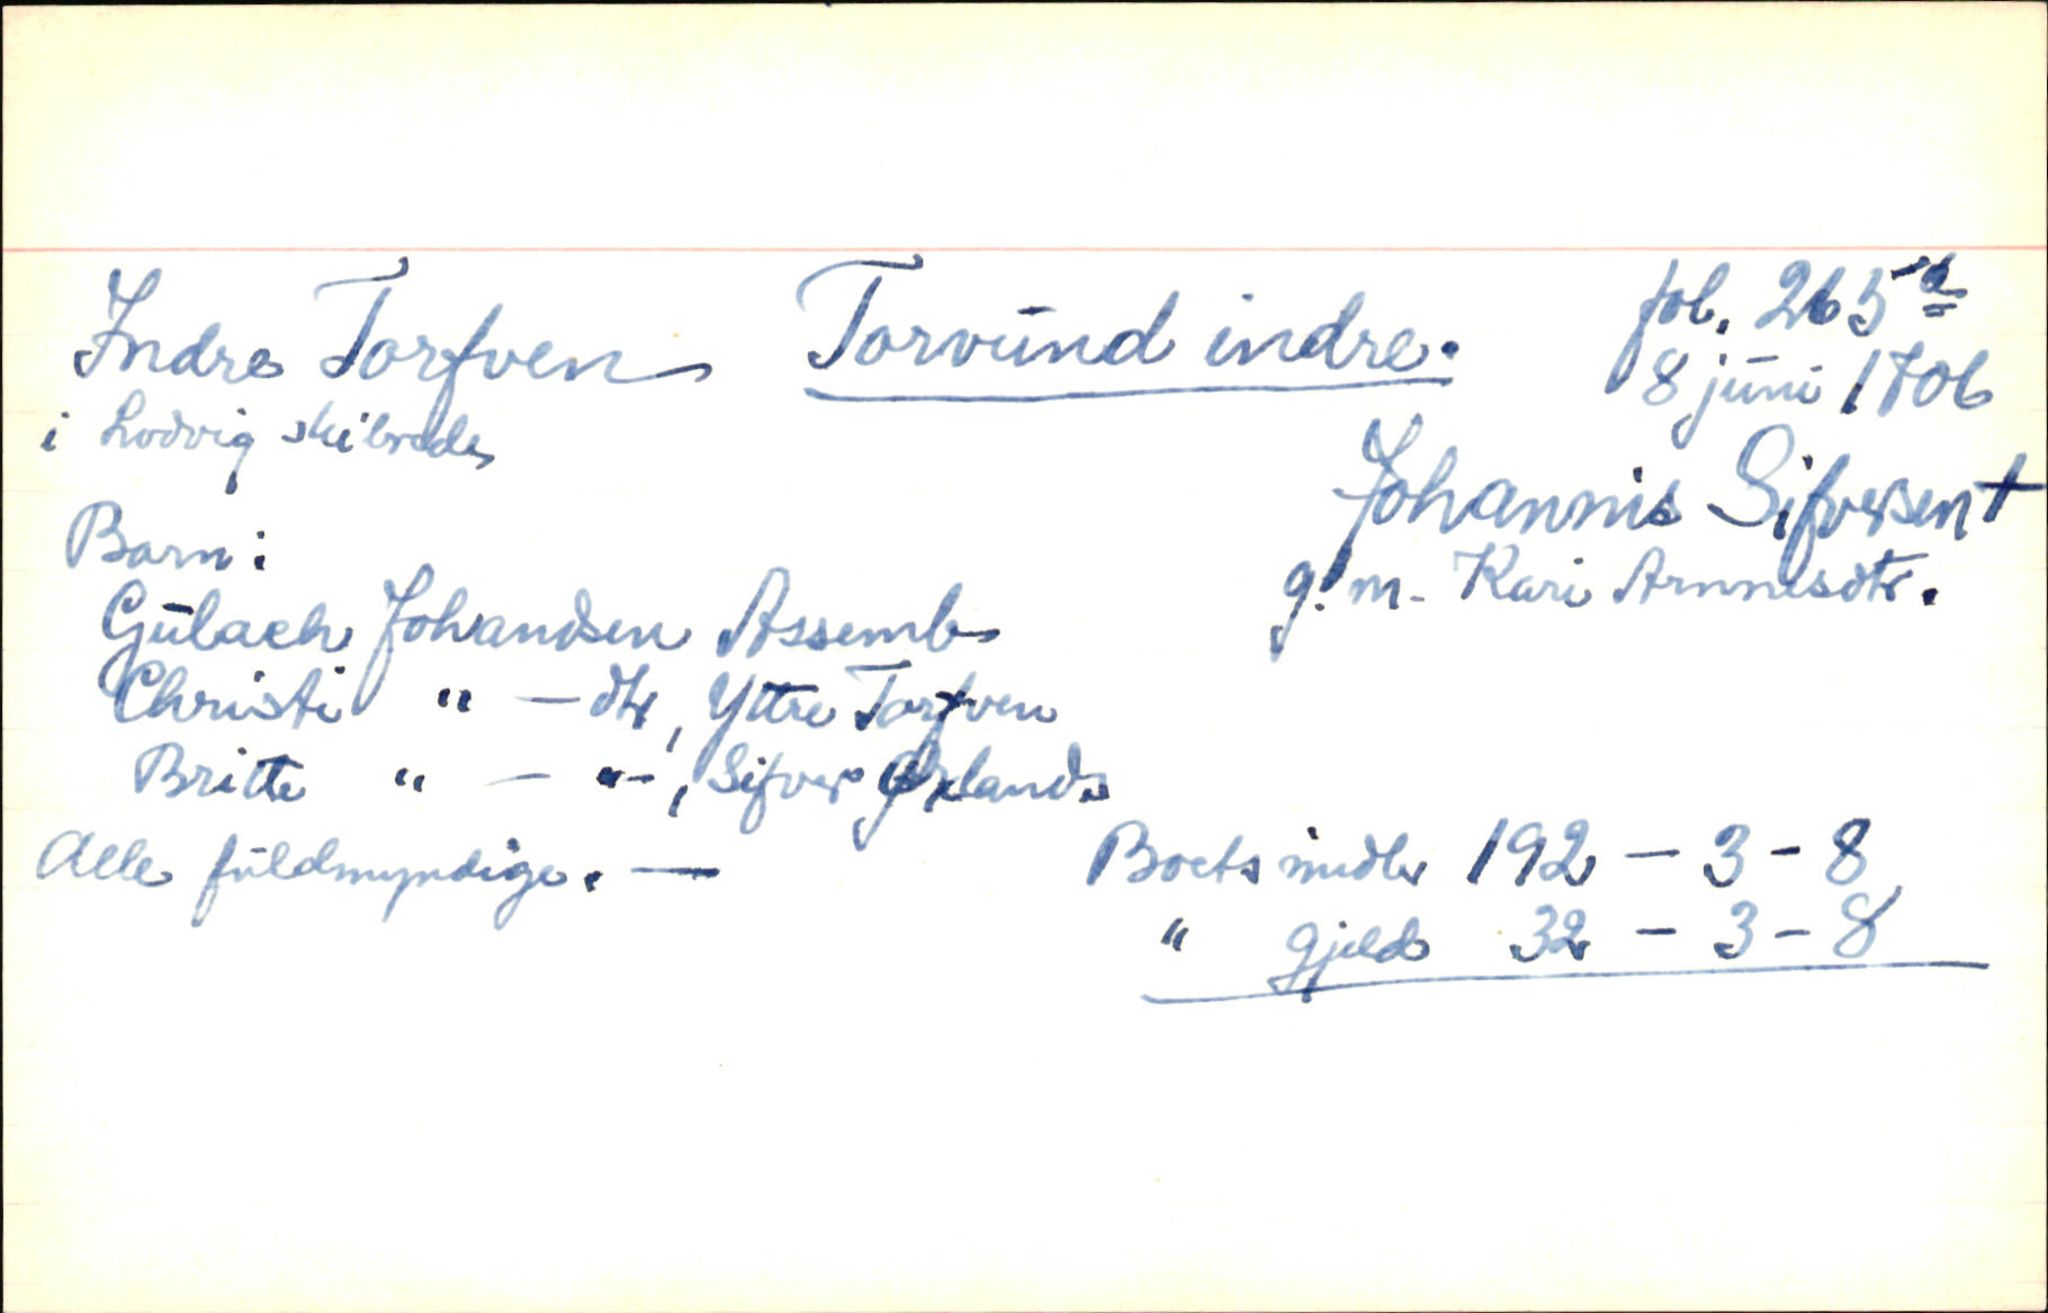 Indre Torfven Torvund indre. fol. 265a
8 juni 1706
i Lodvig skibrede
Johannis Sifversen †
g. m. Kari Arnnesdtr.
Barn:
Gulack Johandsen Assemb
Christi " — dtr, Yttre Torfven
Britte " — " —, Sifver Øxlands
Alle fuldmyndige. —
Boets midler 192 — 3 - 8
" gjeld 32 — 3 - 8